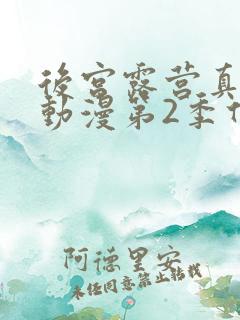 後宮露营真
動漫第2季
阿德里安
未经同意禁止转载